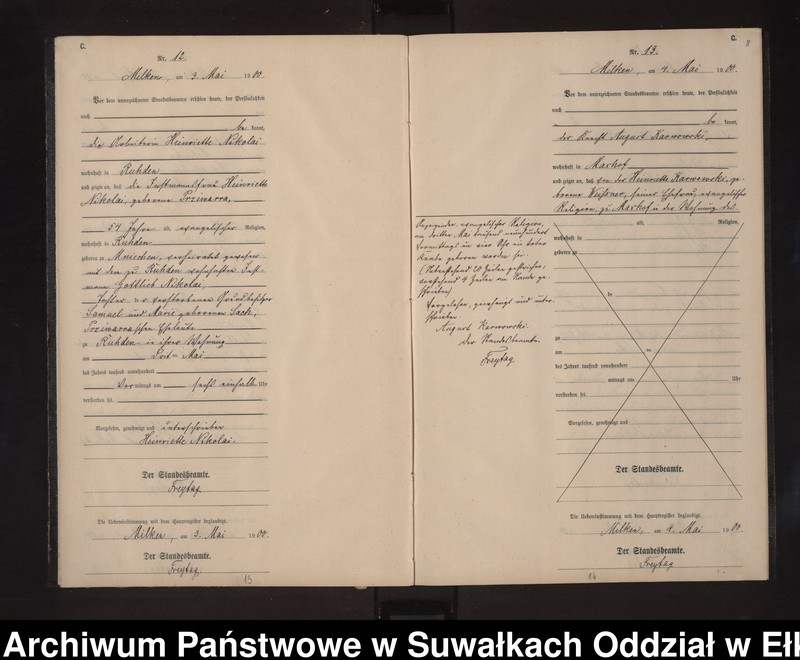 C.
Nr. 12.
Milken, am 3. Mai 1900.
Vor dem unterzeichneten Standesbeamten erschien heute, der Persönlichkeit
nach
be kannt,
die Arbeiterin Heinriette Nikolai
wohnhaft in Ruhden
und zeigte an, daß die Instmannsfrau Heinriette
Nikolai, geborene Prziwarra,
54 Jahre alt, evangelischer Religion,
wohnhaft in Ruhden
geboren zu Mniechen, verheiratet gewesen
mit dem zu Ruhden wohnhaften Inst-
mann Gottlieb Nikolai,
Tochter der verstorbenen Grundbesitzer
Samuel und Marie geborenen Sack,
Prziwarraschen Eheleute
zu Ruhden in ihrer Wohnung
am Mai
des Jahres tausend neunhundert
Vormittags um sechs einhalb Uhr
verstorben sei.
Vorgelesen, genehmigt und unterschrieben
Heinriette Nikolai.
Der Standesbeamte.
Freytag
Die Uebereinstimmung mit dem Hauptregister beglaubigt.
Milken, am 3. Mai 1900.
Der Standesbeamte.
Freytag.
13
C.
8
Nr. 13.
Milken, am 4. Mai 1900.
Vor dem unterzeichneten Standesbeamten erschien heute, der Persönlichkeit
nach
be kannt,
der Knecht August Karwowski,
wohnhaft in Marhof
und zeigte an, daß von der Heinriette Karwowski, ge-
borene Neißner, seiner Ehefrau, evangelischer
Religion, zu Marhof in der Wohnung des
alt, Religion,
wohnhaft in
geboren zu
de
zu
am te
des Jahres tausend neunhundert
mittags um Uhr
verstorben sei.
Vorgelesen, genehmigt und
Der Standesbeamte.
Die Uebereinstimmung mit dem Hauptregister beglaubigt.
Milken, am 4. Mai 1900
Der Standesbeamte.
Freytag
evangelischer Religion,
am dritten Mai tausend neunhundert
Vormittags um vier Uhr ein totes
Knabe geboren worden sei.
(Nebenstehend 20 Zeilen gestrichen,
vorstehend 4 Zeilen am Rande ge-
schrieben)
Vorgelesen, genehmigt und unter-
schrieben
August Karwowski.
Der Standesbeamte.
Freytag
14
Archiwum Państwowe w Suwałkach Oddział w Ełk